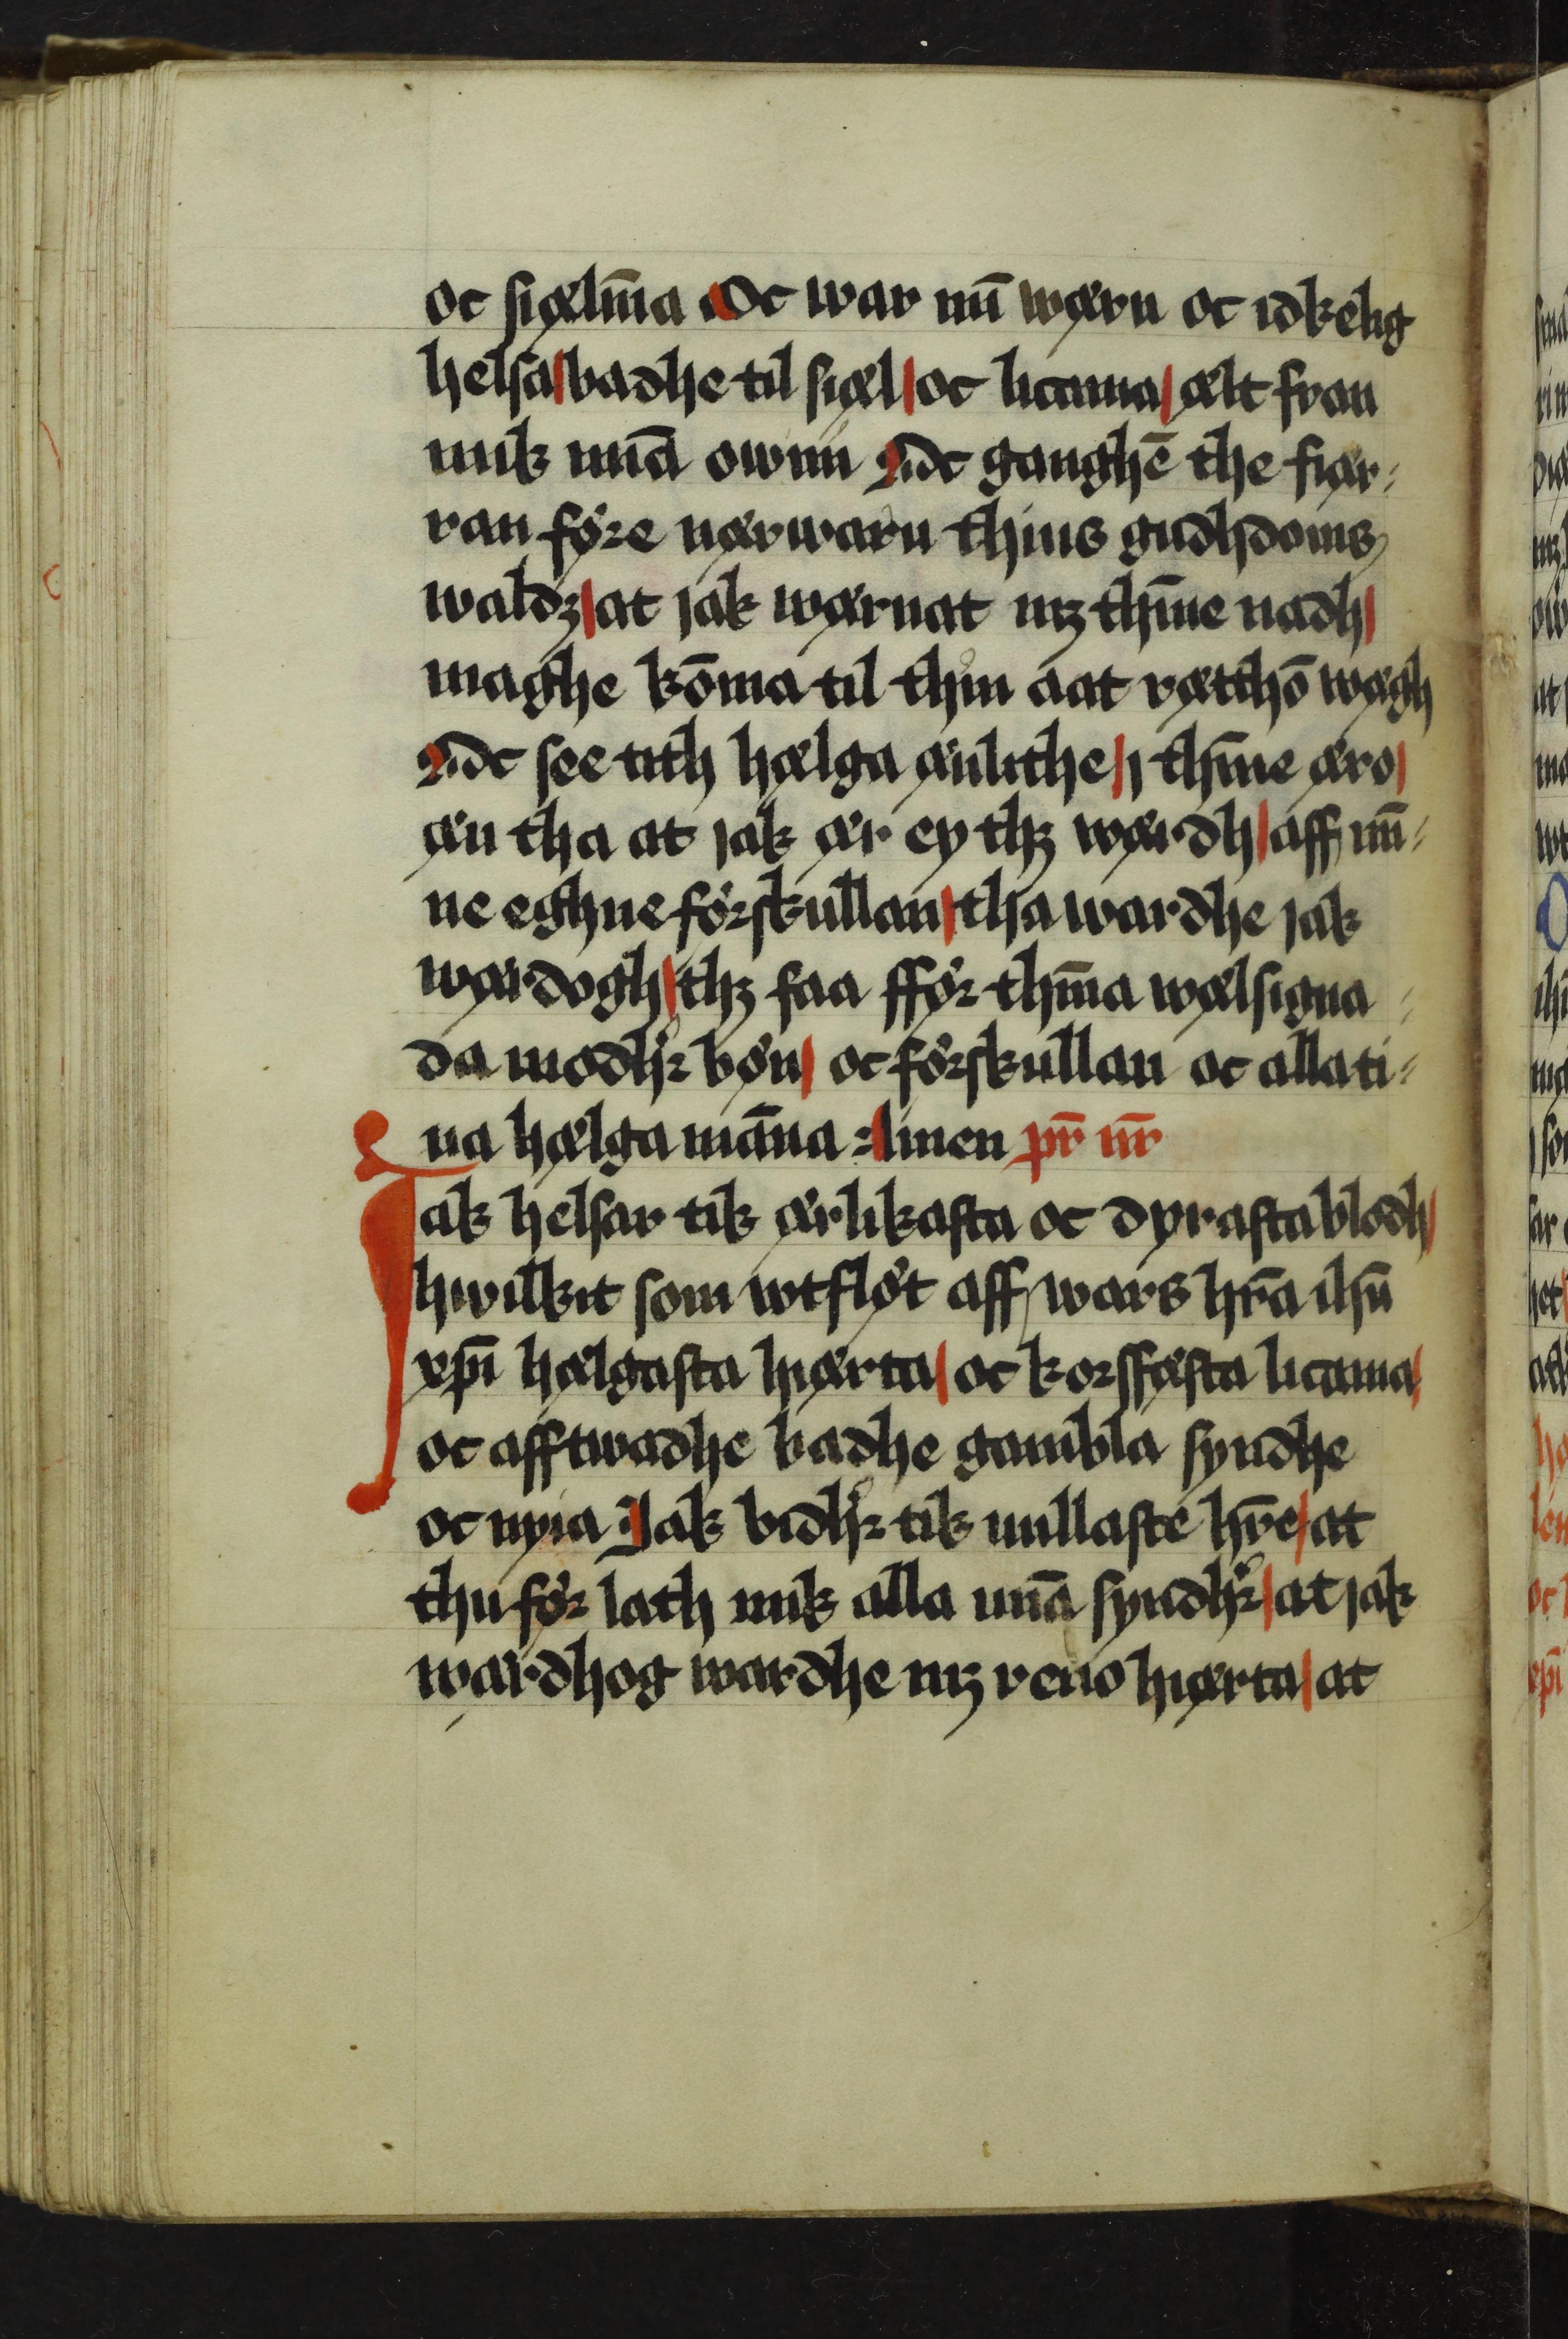 oc siælīna Oc war mī wærn oc idkelig
helsa badhe til siæl oc licama ælt fran
mik mīa owini Oc ganghē the fiær-
ran före nærwaru thins gudhdoms
waldz at jak wærnat mz thīne nadh
maghe kōma til thin aat rætthō wægh
Oc see tith hælga änlithe j thīne æro
æn tha at jak ær ey thz wærdh aff mī-
ne eghne förskullan tha wardhe jak
wærdogh thz faa fför thīna wælsigna-
da modhr bön oc förskullan oc allati-
na hælga māna Amen pr̄ nr̄
Jak helsar tik ærlikasta oc dyrasta blodh
hwilkit som wtflöt aff wars hr̄a ihū
xp̄i hælgasta hiærta oc korsfæsta licama
oc afftwadhe badhe gambla syndhe
oc nyia Jak bidhr tik millaste hr̄e at
thu för lath mik alla mīa syndhr at jak
wærdhog wardhe mz reno hiærta at